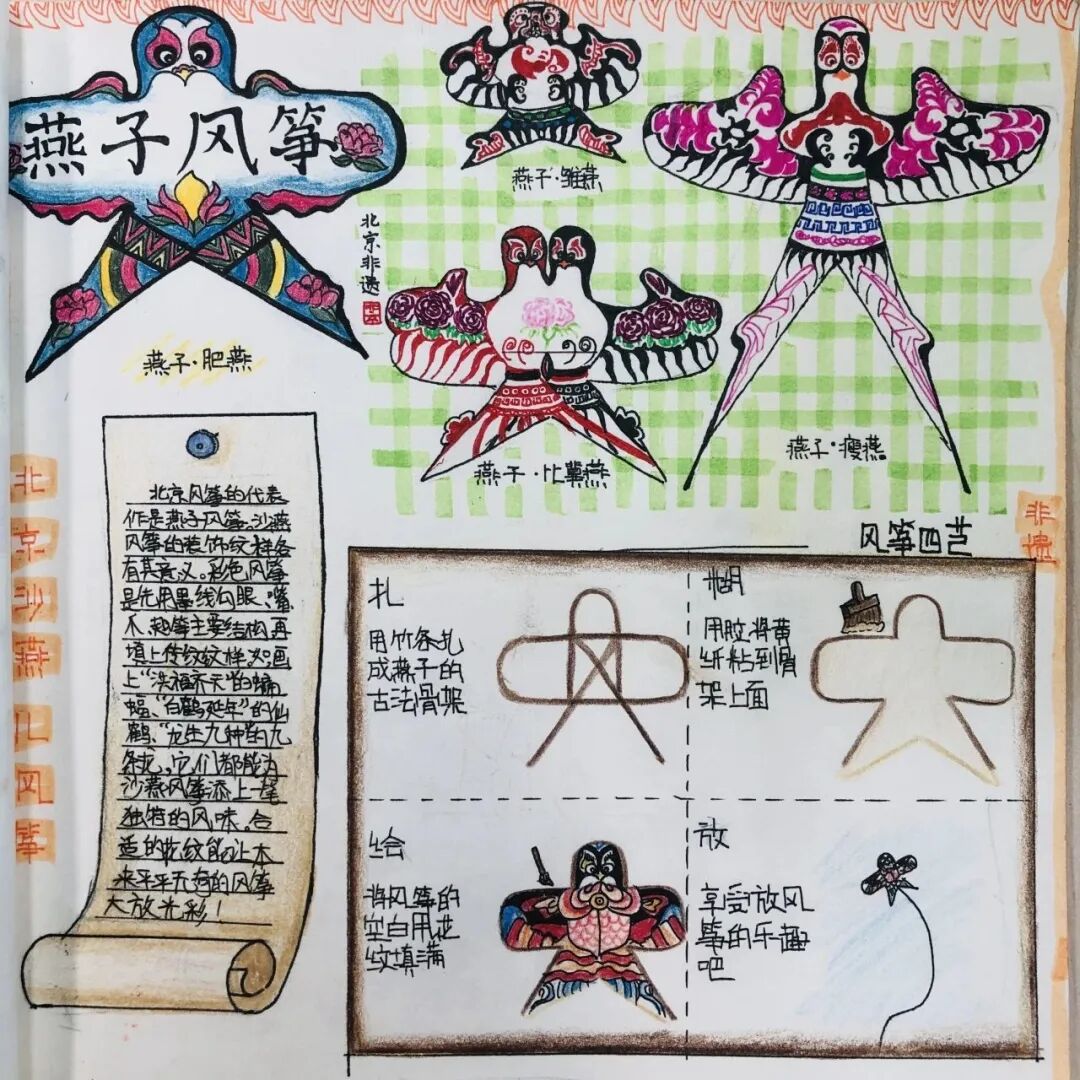 燕子风筝
北京非遗
燕子·肥燕
燕子·雏燕
燕子·比翼燕
燕子·瘦燕
北京沙燕儿风筝
北京风筝的代表
作是燕子风筝。沙燕
风筝的装饰纹样各
有其意义。彩色风筝
是先用墨线勾眼、嘴、
爪、翅等主要结构再
填上传统纹样。如画
上“洪福齐天”的蝙
蝠、“白鹤延年”的仙
鹤、“龙生九种”的九
条龙。它们都能为
沙燕风筝添上一尾
独特的风味。合
适的花纹能让本
来平平无奇的风筝
大放光彩!
非遗
风筝四艺
扎
用竹条扎
成燕子的
古法骨架
糊
用胶将黄
纸粘到骨
架上面
绘
将风筝的
空白用花
纹填满
放
享受放风
筝的乐趣
吧